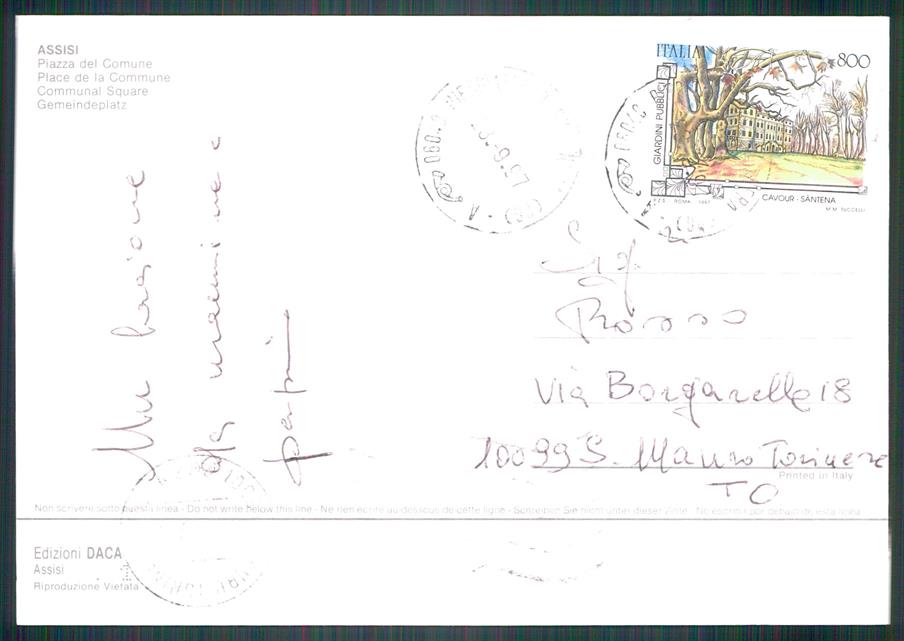 ASSISI
Piazza del Comune
Place de la Commune
Communal Square
Gemeindeplatz
ITALIA 800
GIARDINI PUBBLICI
CAVOUR - SANTENA
I.P.Z.S. ROMA 1997
M.M. TUCCELLI
06049
06049
Un bacione
da mammina e
papi
Sig.
Rosso
Via Borgarello 18
10099 S. Mauro Torinese
TO
Printed in Italy
Non scrivere sotto questa linea - Do not write below this line - Ne rien écrire au-dessous de cette ligne - Schreiben Sie nicht unter dieser Linie - No escribir por debajo de esta línea
Edizioni DACA
Assisi
Riproduzione Vietata